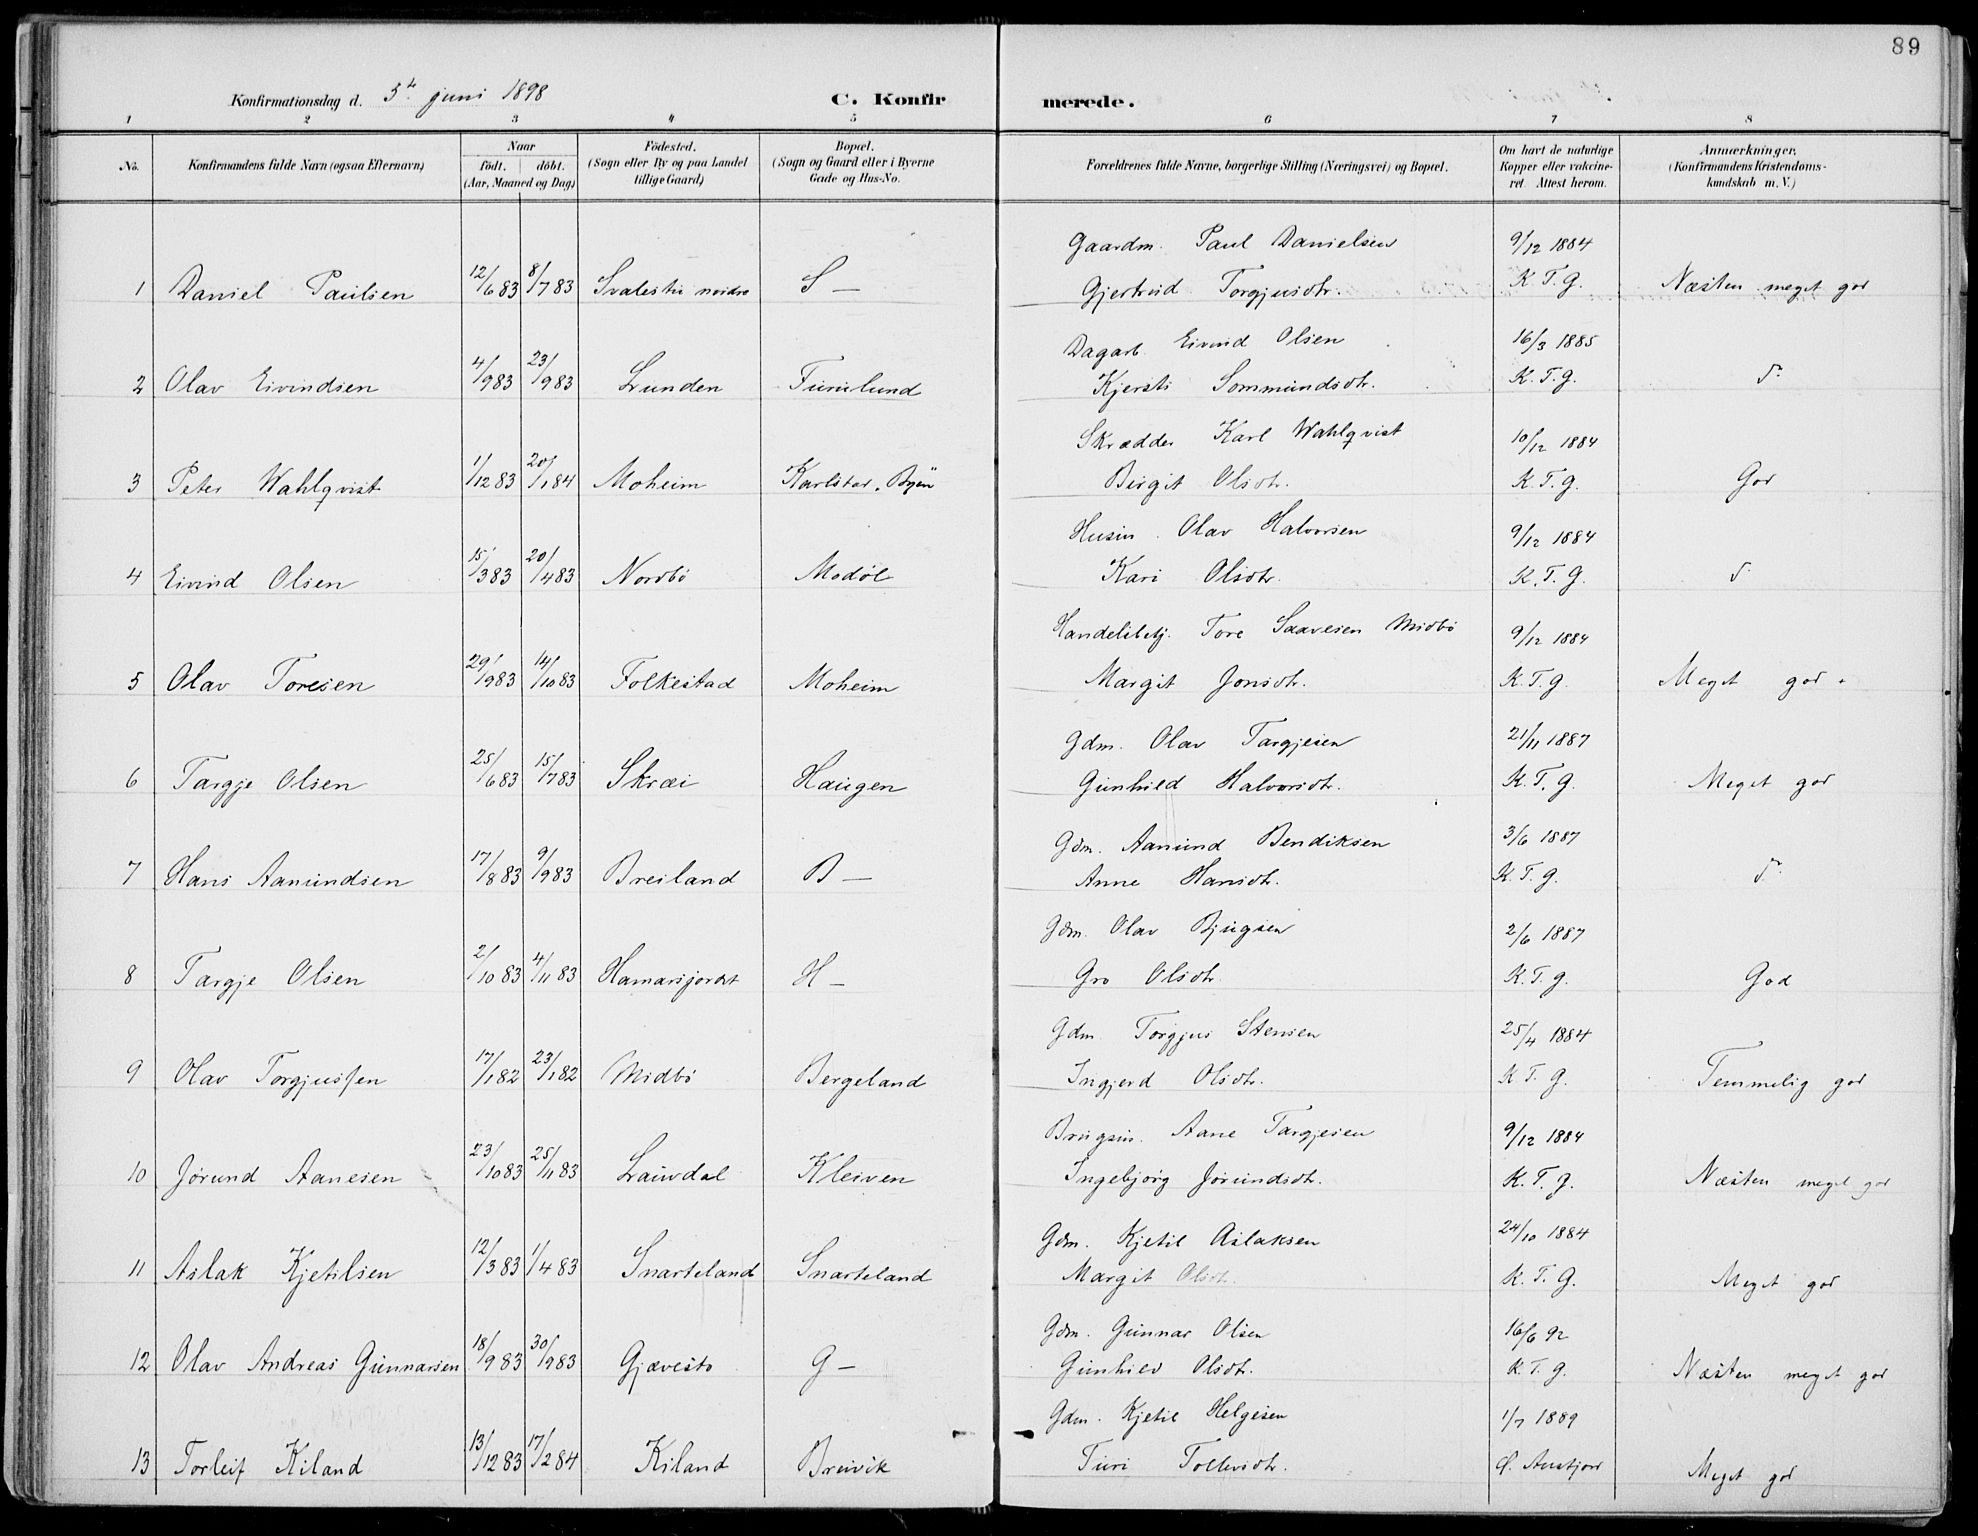 89
Konfirmationsdag d. 5te juni 1898 C. Konfirmerede.
1 2 3 4 5 6 7 8
No. Konfirmandens fulde Navn (ogsaa Efternavn) Naar født. døbt. (Aar, Maaned og Dag) Fødested. (Sogn eller By og paa Landet tillige Gaard) Bopæl. (Sogn og Gaard eller i Byerne Gade og Hus-No. Forældrenes fulde Navne, borgerlige Stilling (Næringsvei) og Bopæl. Om havt de naturlige Kopper eller vakcineret. Attest herom. Anmærkninger. (Konfirmandens Kristendomskundskab m. V.)
Gaardm. Paul Danielsen 9/12 1884
1 Daniel Paulsen 12/6 83 8/7 83 Svalestu nordre S — Gjertrud Torgjusdtr. K. T. G. Næsten meget god
Dagarb. Eivind Olsen 16/3 1885
2 Olav Eivindsen 4/9 83 23/9 83 Lunden Furulund Kjersti Sommundsdtr. K. T. G. do
Skrædder Karl Wahlqvist 10/12 1884
3 Peter Wahlqvist 1/12 83 20/1 84 Moheim Karlstad, Byen Birgit Olsdtr. K. T. G. God
Husm. Olav Halvorsen 9/12 1884
4 Eivind Olsen 15/3 83 20/4 83 Nordbø Modøl Kari Olsdtr. K. T. G. do
Handelsbetj. Tore Saavesen Midbø 9/12 1884
5 Olav Toresen 29/9 83 14/10 83 Folkestad Moheim Margit Jonsdtr. K. T. G. Meget god.
Gdm. Olav Targjesen 21/11 1887
6 Targje Olsen 25/6 83 15/7 83 Skræi Haugen Gunhild Halvorsdtr. K. T. G. Meget god
Gdm. Aamund Bendiksen 3/6 1887
7 Hans Aamundsen 17/8 83 9/9 83 Breiland B — Anne Hansdtr. K. T. G. do
Gdm. Olav Bjugsen 2/6 1887
8 Targje Olsen 2/10 83 4/11 83 Hamarsjordet H — Gro Olsdtr. K. T. G. God
Gdm Torgjus Stensen 25/4 1884
9 Olav Torgjussen 17/1 82 23/1 82 Midbø Bergeland Ingjerd Olsdtr. K. T. G. Temmelig god
Brugsm. Aane Targjesen 9/12 1884
10 Jørund Aanesen 23/10 83 25/11 83 Lauvdal Kleiven Ingebjørg Jørundsdtr. K. T. G. Næsten meget god
Gdm. Kjetil Aslaksen 24/10 1884
11 Aslak Kjetilsen 12/3 83 1/4 83 Snarteland Snarteland Margit Olsdtr. K. T. G. Meget god
Gdm. Gunnar Olsen 16/6 92
12 Olav Andreas Gunnarsen 18/9 83 30/9 83 Gjævesto G — Gunhild Olsdtr. K. T. G. Næsten meget god
Gdm. Kjetil Helgesen 1/7 1889
13 Torleif Kiland 13/12 83 17/2 84 Kiland Breivik Turi Tollevsdtr. Austfjord Meget god